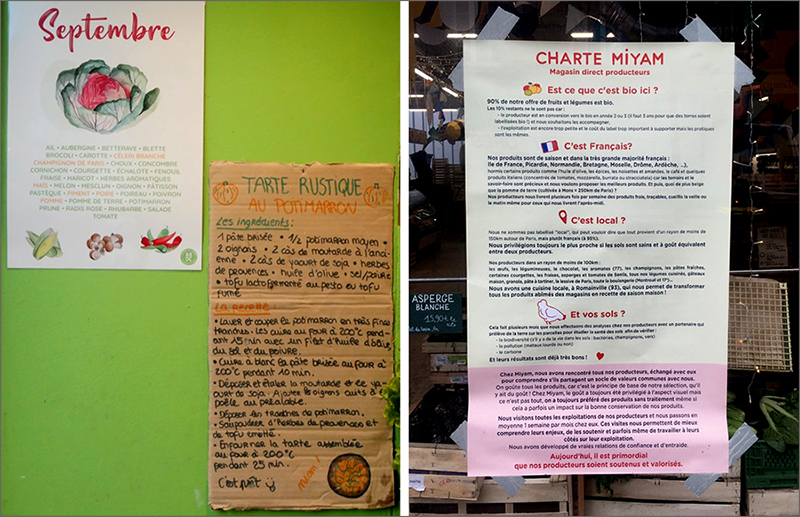 Septembre
AIL • AUBERGINE • BETTERAVE • BLETTE
BROCOLI • CAROTTE • CÉLERI BRANCHE
CHAMPIGNON DE PARIS • CHOUX • CONCOMBRE
CORNICHON • COURGETTE • ÉCHALOTE • FENOUIL
FRAISE • HARICOT • HERBES AROMATIQUES
MAÏS • MELON • MESCLUN • OIGNON • PÂTISSON
PASTÈQUE • PIMENT • POIRE • POIREAU • POIVRON
POMME • POMME DE TERRE • POTIMARRON
PRUNE • RADIS ROSE • RHUBARBE • SALADE
TOMATE
TARTE RUSTIQUE
AU POTIMARRON
Les ingrédients :
1 pâte brisée • 1/2 potimarron moyen •
2 oignons • 2 càs de moutarde à l'anci-
enne • 2 càs de yaourt de soja • herbes
de provences • huile d'olive • sel/poivre
• tofu lactofermenté au pesto ou tofu
fumé
La recette :
• Laver et couper le potimarron en très fines
tranches. Les cuire au four à 200°C pend-
ant 15 min avec un filet d'huile d'olive,
du sel et du poivre.
• Cuire à blanc la pâte brisée au four à
200°C pendant 10 min.
• Déposer et étaler la moutarde et le ya-
ourt de soja. Ajouter les oignons cuits à la
poêle au préalable.
• Déposer les tranches de potimarron.
• Saupoudrer d'herbes de provences et
de tofu émietté.
• Enfourner la tarte assemblée
au four à 200°C
pendant 25 min.
C'est prêt
miam!
CHARTE MiYAM
Magasin direct producteurs
Est ce que c'est bio ici ?
90% de notre offre de fruits et légumes est bio.
Les 10% restants ne le sont pas car :
- le producteur est en conversion vers le bio en année 2 ou 3 (il faut 3 ans pour que des terres soient
labellisées bio !) et nous souhaitons les accompagner,
- l'exploitation est encore trop petite et le coût du label trop important à supporter mais les pratiques
sont les mêmes.
C'est Français?
Nos produits sont de saison et dans la très grande majorité français :
Ile de France, Picardie, Normandie, Bretagne, Moselle, Drôme, Ardèche, ...),
hormis certains produits comme l'huile d'olive, les épices, les noisettes et amandes, le café et quelques
produits italiens (concentré de tomates, mozzarella, burrata ou stracciatella) car les terroirs et le
savoir-faire sont précieux et nous voulons proposer les meilleurs produits. Et puis, quoi de plus bange
que la pomme de terre (cultivée à Mons > 210km de Paris !)
Nos producteurs nous livrent plusieurs fois par semaine des produits frais, traçables, cueillis la veille ou
le matin même pour ceux qui nous livrent l'après-midi.
C'est local ?
Nous ne sommes pas labellisé "local", qui peut vouloir dire que tout provient d'un rayon de moins de
150km autour de Paris, mais plutôt français (à 95%).
Nous privilégions toujours le plus proche si les sols sont sains et à goût équivalent
entre deux producteurs.
Nos producteurs dans un rayon de moins de 100km :
les œufs, les légumineuses, le chocolat, les ananas (77), les champignons, les pâtes fraîches,
certaines courgettes, les fraises, asperges et tomates de Senlis, tous nos légumes cuisinés, gâteaux
maison, granola, pâte à tartiner, la lessive de Paris, toute la boulangerie (Montreuil et 17°)...
Nous avons une cuisine locale, à Romainville (93), qui nous permet de transformer
tous les produits abîmés des magasins en recette de saison maison !
Et vos sols ?
Cela fait plusieurs mois que nous effectuons des analyses chez nos producteurs avec un partenaire qui
prélève de la terre sur les parcelles pour étudier la santé des sols afin de vérifier :
- la biodiversité (s'il y a de la vie dans les sols : bactéries, champignons, vers)
- la pollution (métaux lourds ou non)
- le carbone
Et leurs résultats sont déjà très bons !
Chez Miyam, nous avons rencontré tous nos producteurs, échangé avec eux
pour comprendre s'ils partagent un socle de valeurs communes avec nous.
On goûte tous les produits, car c'est le principe de base de notre sélection, qu'il
y ait du goût ! Chez Miyam, le goût a toujours été privilégié à l'aspect visuel mais
ce n'est pas tout, on a toujours préféré des produits sans traitement même si
cela a parfois un impact sur la bonne conservation de nos produits.
Nous visitons toutes les exploitations de nos producteurs et nous passons en
moyenne 1 semaine par mois chez eux. Ces visites nous permettent de mieux
comprendre leurs enjeux, de les soutenir et parfois même de travailler à leurs
côtés sur leur exploitation.
Nous avons développé de vraies relations de confiance et d'entraide.
Aujourd'hui, il est primordial
que nos producteurs soient soutenus et valorisés.
ASPERGE
BLANCHE
15,90€